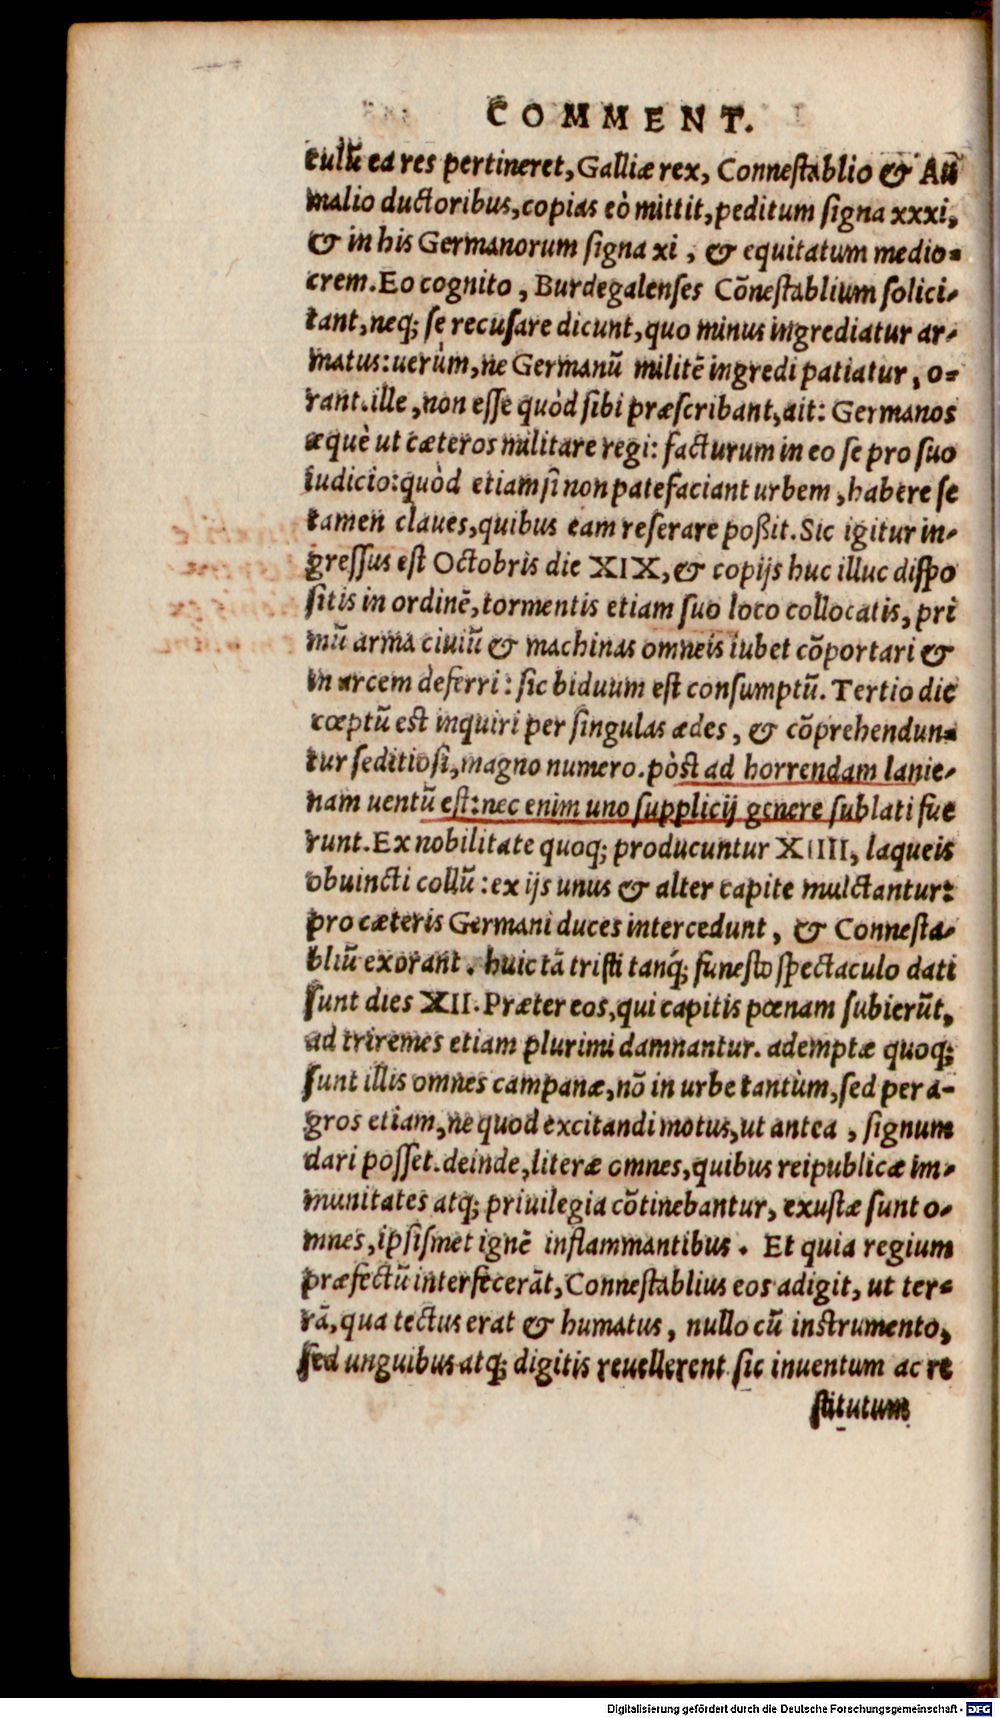 COMMENT.
culũ ea res pertineret, Galliæ rex, Connestablio & Au
malio ductoribus, copias eò mittit, peditum signa xxxi,
& in his Germanorum signa xi, & equitatum medio-
crem. Eo cognito, Burdegalenses Cõnestablium solici-
tant, neq; se recusare dicunt, quo minus ingrediatur ar-
matus: uerùm, ne Germanũ militẽ ingredi patiatur, o-
rant. ille, non esse quòd sibi præscribant, ait: Germanos
æquè ut cæteros militare regi: facturum in eo se pro suo
iudicio: quòd etiamsi non patefaciant urbem, habere se
tamen claues, quibus eam reserare poßit. Sic igitur in-
gressus est Octobris die XIX, & copijs huc illuc dispo
sitis in ordinẽ, tormentis etiam suo loco collocatis, pri
mũ arma ciuiũ & machinas omneis iubet cõportari &
in arcem deferri: sic biduum est consumptũ. Tertio die
cœptũ est inquiri per singulas ædes, & cõprehendun-
tur seditiosi, magno numero. pòst ad horrendam lanie-
nam uentũ est: nec enim uno supplicij genere sublati fue
runt. Ex nobilitate quoq; producuntur XIIII, laqueis
obuincti collũ: ex ijs unus & alter capite mulctantur:
pro cæteris Germani duces intercedunt, & Connesta-
bliũ exorant. huic tã tristi tanq́; funesto spectaculo dati
sunt dies XII. Præter eos, qui capitis pœnam subierũt,
ad triremes etiam plurimi damnantur. ademptæ quoq;
sunt illis omnes campanæ, nõ in urbe tantùm, sed per a-
gros etiam, ne quod excitandi motus, ut antea, signum
dari posset. deinde, literæ omnes, quibus reipublicæ im-
munitates atq; priuilegia cõtinebantur, exustæ sunt o-
mnes, ipsismet ignẽ inflammantibus. Et quia regium
præfectũ interfecerãt, Connestablius eos adigit, ut ter-
rã, qua tectus erat & humatus, nullo cũ instrumento,
sed unguibus atq; digitis reuellerent. sic inuentum ac re
stitutum
Digitalisierung gefördert durch die Deutsche Forschungsgemeinschaft - DFG